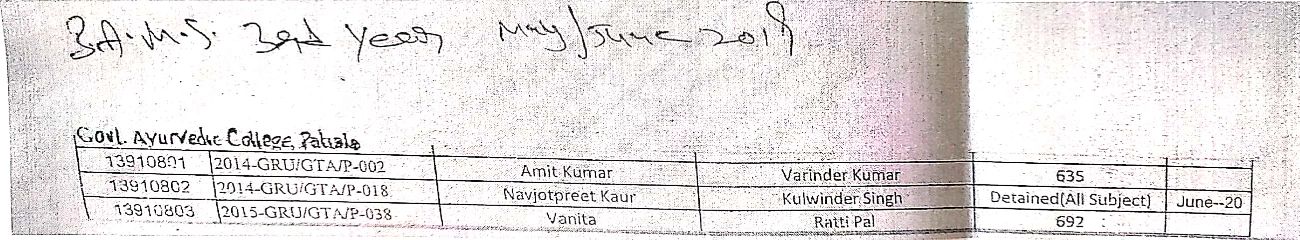 B.A.M.S. 3rd Year May/June 2019
Govt. Ayurvedic College, Patiala
13910801 2014-GRU/GTA/P-002 Amit Kumar Varinder Kumar 635
13910802 2014-GRU/GTA/P-018 Navjotpreet Kaur Kulwinder Singh Detained(All Subject) June--20
13910803 2015-GRU/GTA/P-038 Vanita Ratti Pal 692